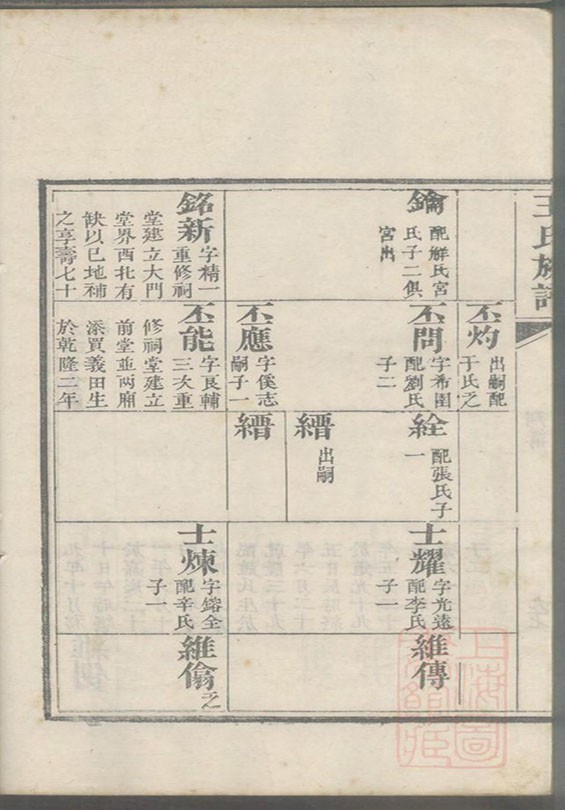 王氏族譜
丕灼
出嗣配
于氏之
鑰
配解氏宮
氏子二俱
宮出
丕問
字希圖
配劉氏
子二
絟
配張氏子
一
士耀
字光遠
配李氏
子一
維傳
縉
出嗣
丕應
字僕志
嗣子一
縉
銘新
字精一
重修祠
堂建立大門
堂界西北有
缺以已地補
之享壽七十
丕能
字艮輔
三次重
修祠堂建立
前堂並两廂
添買義田生
於乾隆二年
士煉
字鎔全
配辛氏
子一
維偷
之
上海圖